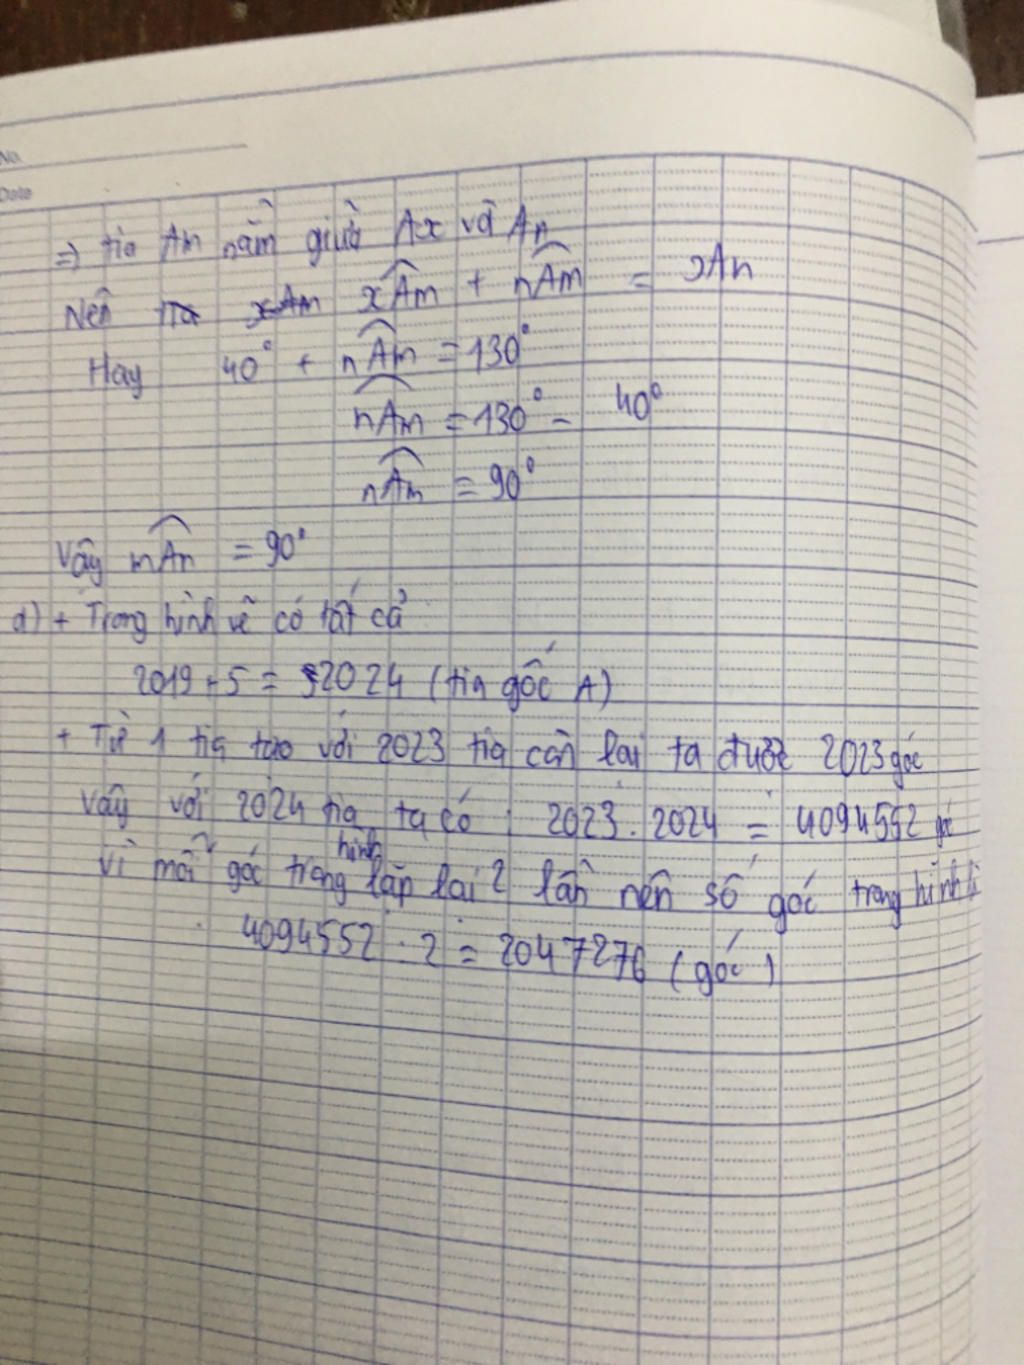 No.
Date
=> tia Am nằm giữa Ax và An
Nên xAm xÂm + nÂm = xAn
Hay 40° + nÂm = 130°
nÂm = 130° - 40°
nÂm = 90°
Vậy mÂn = 90°
d) + Trong hình vẽ có tất cả
2019 + 5 = 2024 (tia gốc A)
+ Từ 1 tia tạo với 2023 tia còn lại ta được 2023 góc
Vậy với 2024 tia ta có : 2023 . 2024 = 4094552 góc
hình
Vì mỗi góc trong lặp lại 2 lần nên số góc trong hình là
4094552 : 2 = 2047276 (góc)